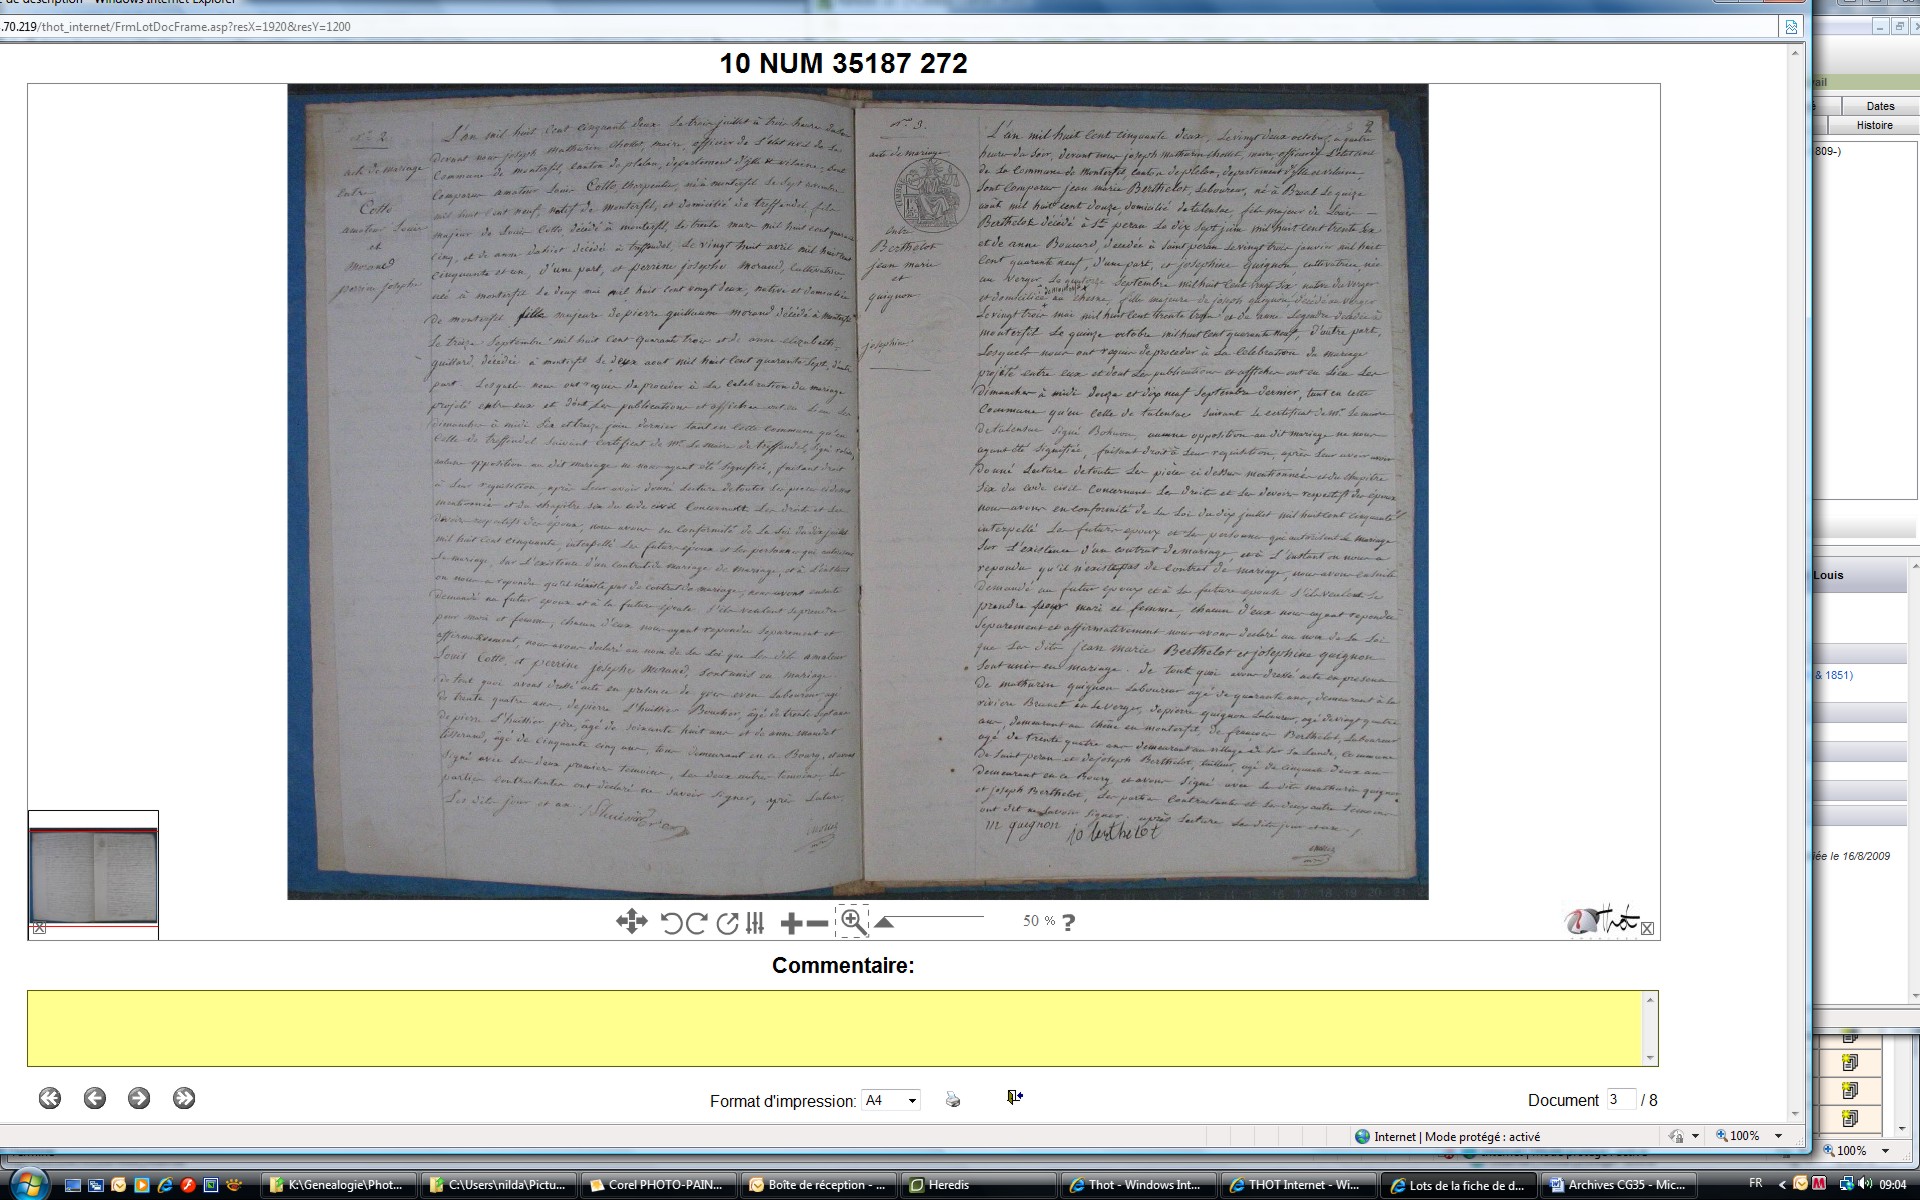 de description - Windows Internet Explorer
.70.219/thot_internet/FrmLotDocFrame.asp?resX=1920&resY=1200
10 NUM 35187 272
N° 2.
acte de mariage
entre
Cotto
amateur Louis
et
Morand
perrine josephe
L'an mil huit cent cinquante deux. Le trois juillet à trois heures
devant nous joseph mathurin chollet, maire, officier de l'état civil de la
Commune de montorfil, canton de plélan, département d'ille et vilaine, sont
Comparus amateur Louis Cotto, charpentier, né à montorfil le sept novembre
mil huit cent neuf, natif de montorfil, et domicilié de treffendel, fils
majeur de Louis Cotto décédé à montorfil, le trente mars mil huit cent quarante
cinq, et de anne décédée à treffendel, le vingt huit avril mil huit cent
cinquante et un, d'une part, et perrine josephe Morand, cultivatrice,
née à montorfil le deux mai mil huit cent vingt deux, native et domiciliée
de montorfil fille majeure de pierre guillaume morand décédé à montorfil
le treize Septembre mil huit cent quarante trois et de anne elizabeth
guillard, décédée à montorfil le deux aout mil huit cent quarante sept, d'autre
part. Lesquels nous ont requis de procéder à la célébration du mariage
projeté entre eux et dont les publications et affiches ont eu lieu les
dimanches à midi six et treize juin dernier tant en cette commune qu'en
celle de treffendel suivant certificat de Mr le maire de treffendel, signé
aucune opposition au dit mariage ne nous ayant été signifiée, faisant droit
à leur réquisition, après leur avoir donné lecture de toutes les pièces ci dessus
mentionnées et du chapitre six du code civil concernant les droits et les
devoirs respectifs des époux, nous avons en conformité de la loi du dix juillet
mil huit cent cinquante, interpellé les futurs époux et les personnes qui autorisent
le mariage, sur l'existence d'un contrat de mariage de mariage, et à l'instant
on nous a répondu qu'il n'existe pas de contrat de mariage, nous avons ensuite
demandé au futur époux et à la future épouse s'ils veulent se prendre
pour mari et femme, chacun d'eux nous ayant répondu séparément et
affirmativement, nous avons déclaré au nom de la loi que les dits amateur
Louis Cotto, et perrine josephe Morand, sont unis en mariage
de tout quoi avons dressé acte en présence de yves even laboureur, agé
de trente quatre ans, de pierre L'huillier Boucher, âgé de trente sept ans
de pierre L'huillier père, âgé de soixante huit ans et de anne
tisserand, âgé de cinquante cinq ans, tous demeurant en ce Bourg, et avons
signé avec les deux premiers témoins, les deux autres témoins, les
parties contractantes ont déclaré ne savoir signer, après lecture
Les dits jour et an
N° 3.
acte de mariage
entre
Berthelot
jean marie
et
quignon
josephine
L'an mil huit cent cinquante deux, le vingt deux octobre, à quatre
heures du soir, devant nous joseph mathurin chollet, maire officier de l'état civil
de la commune de Montorfil, canton de plélan, département d'ille et vilaine,
sont comparus jean marie Berthelot, Laboureur, né à Bréal le quize
août mil huit cent douze, domicilié de talensac, fils majeur de Louis
Berthelot décédé à St. peran le dix sept juin mil huit cent trente six
et de anne Bouvard, décédée à Saint peran le vingt trois janvier mil huit
cent quarante neuf, d'une part, et josephine quignon, cultivatrice, née
au verger, le quatorze Septembre mil huit cent vingt six native du verger
et domiciliée au chesne, fille majeure de joseph quignon, décédé au verger
le vingt trois mai mil huit cent trente trois et de anne Legendre décédée à
montorfil le quinze octobre mil huit cent quarante neuf, d'autre part,
Lesquels nous ont requis de procéder à la célébration du mariage
projeté entre eux et dont les publications et affiches ont eu lieu les
dimanches à midi douze et dix neuf Septembre dernier, tant en cette
Commune qu'en celle de talensac suivant le certificat de Mr le maire
de talensac signé, aucune opposition au dit mariage ne nous
ayant été signifiée, faisant droit à leur réquisition, après leur avoir
donné lecture de toutes les pièces ci dessus mentionnées et du chapitre
six du code civil concernant les droits et les devoirs respectifs des époux
nous avons en conformité de la loi du dix juillet mil huit cent cinquante
interpellé les futurs époux et les personnes qui autorisent le mariage
sur l'existence d'un contrat de mariage et à l'instant on nous a
répondu qu'il n'existe pas de contrat de mariage, nous avons ensuite
demandé au futur époux et à la future épouse s'ils veulent se
prendre pour mari et femme, chacun d'eux nous ayant répondu
séparément et affirmativement nous avons déclaré au nom de la loi
que les dits jean marie Berthelot et josephine quignon
sont unis en mariage. de tout quoi avons dressé acte en présence
de mathurin quignon laboureur agé de quarante ans, demeurant à la
riviere Brunet en le verger, de pierre quignon laboureur, agé de vingt quatre
ans, demeurant au chêne en montorfil, de françois Berthelot, laboureur
agé de trente quatre ans demeurant au village de sur la lande, commune
de Saint peran et de joseph Berthelot, tailleur, agé de cinquante deux ans
demeurant en ce bourg et avons signé avec les dits mathurin quignon
et joseph Berthelot, les parties contractantes et les deux autres témoins
ont dit ne savoir signer. après lecture les dits jour et an
m quignon jo berthelot
50 % ?
thot
Commentaire:
Format d'impression: A4
Document 3 / 8
Internet | Mode protégé : activé
100%
ail
Dates
Histoire
809-)
Louis
& 1851)
ée le 16/8/2009
100%
K:\Genealogie\Phot...
C:\Users\nilda\Pictu...
Corel PHOTO-PAIN...
Boîte de réception - ...
Heredis
Thot - Windows Int...
THOT Internet - Wi...
Lots de la fiche de d...
Archives CG35 - Mic...
FR
09:04